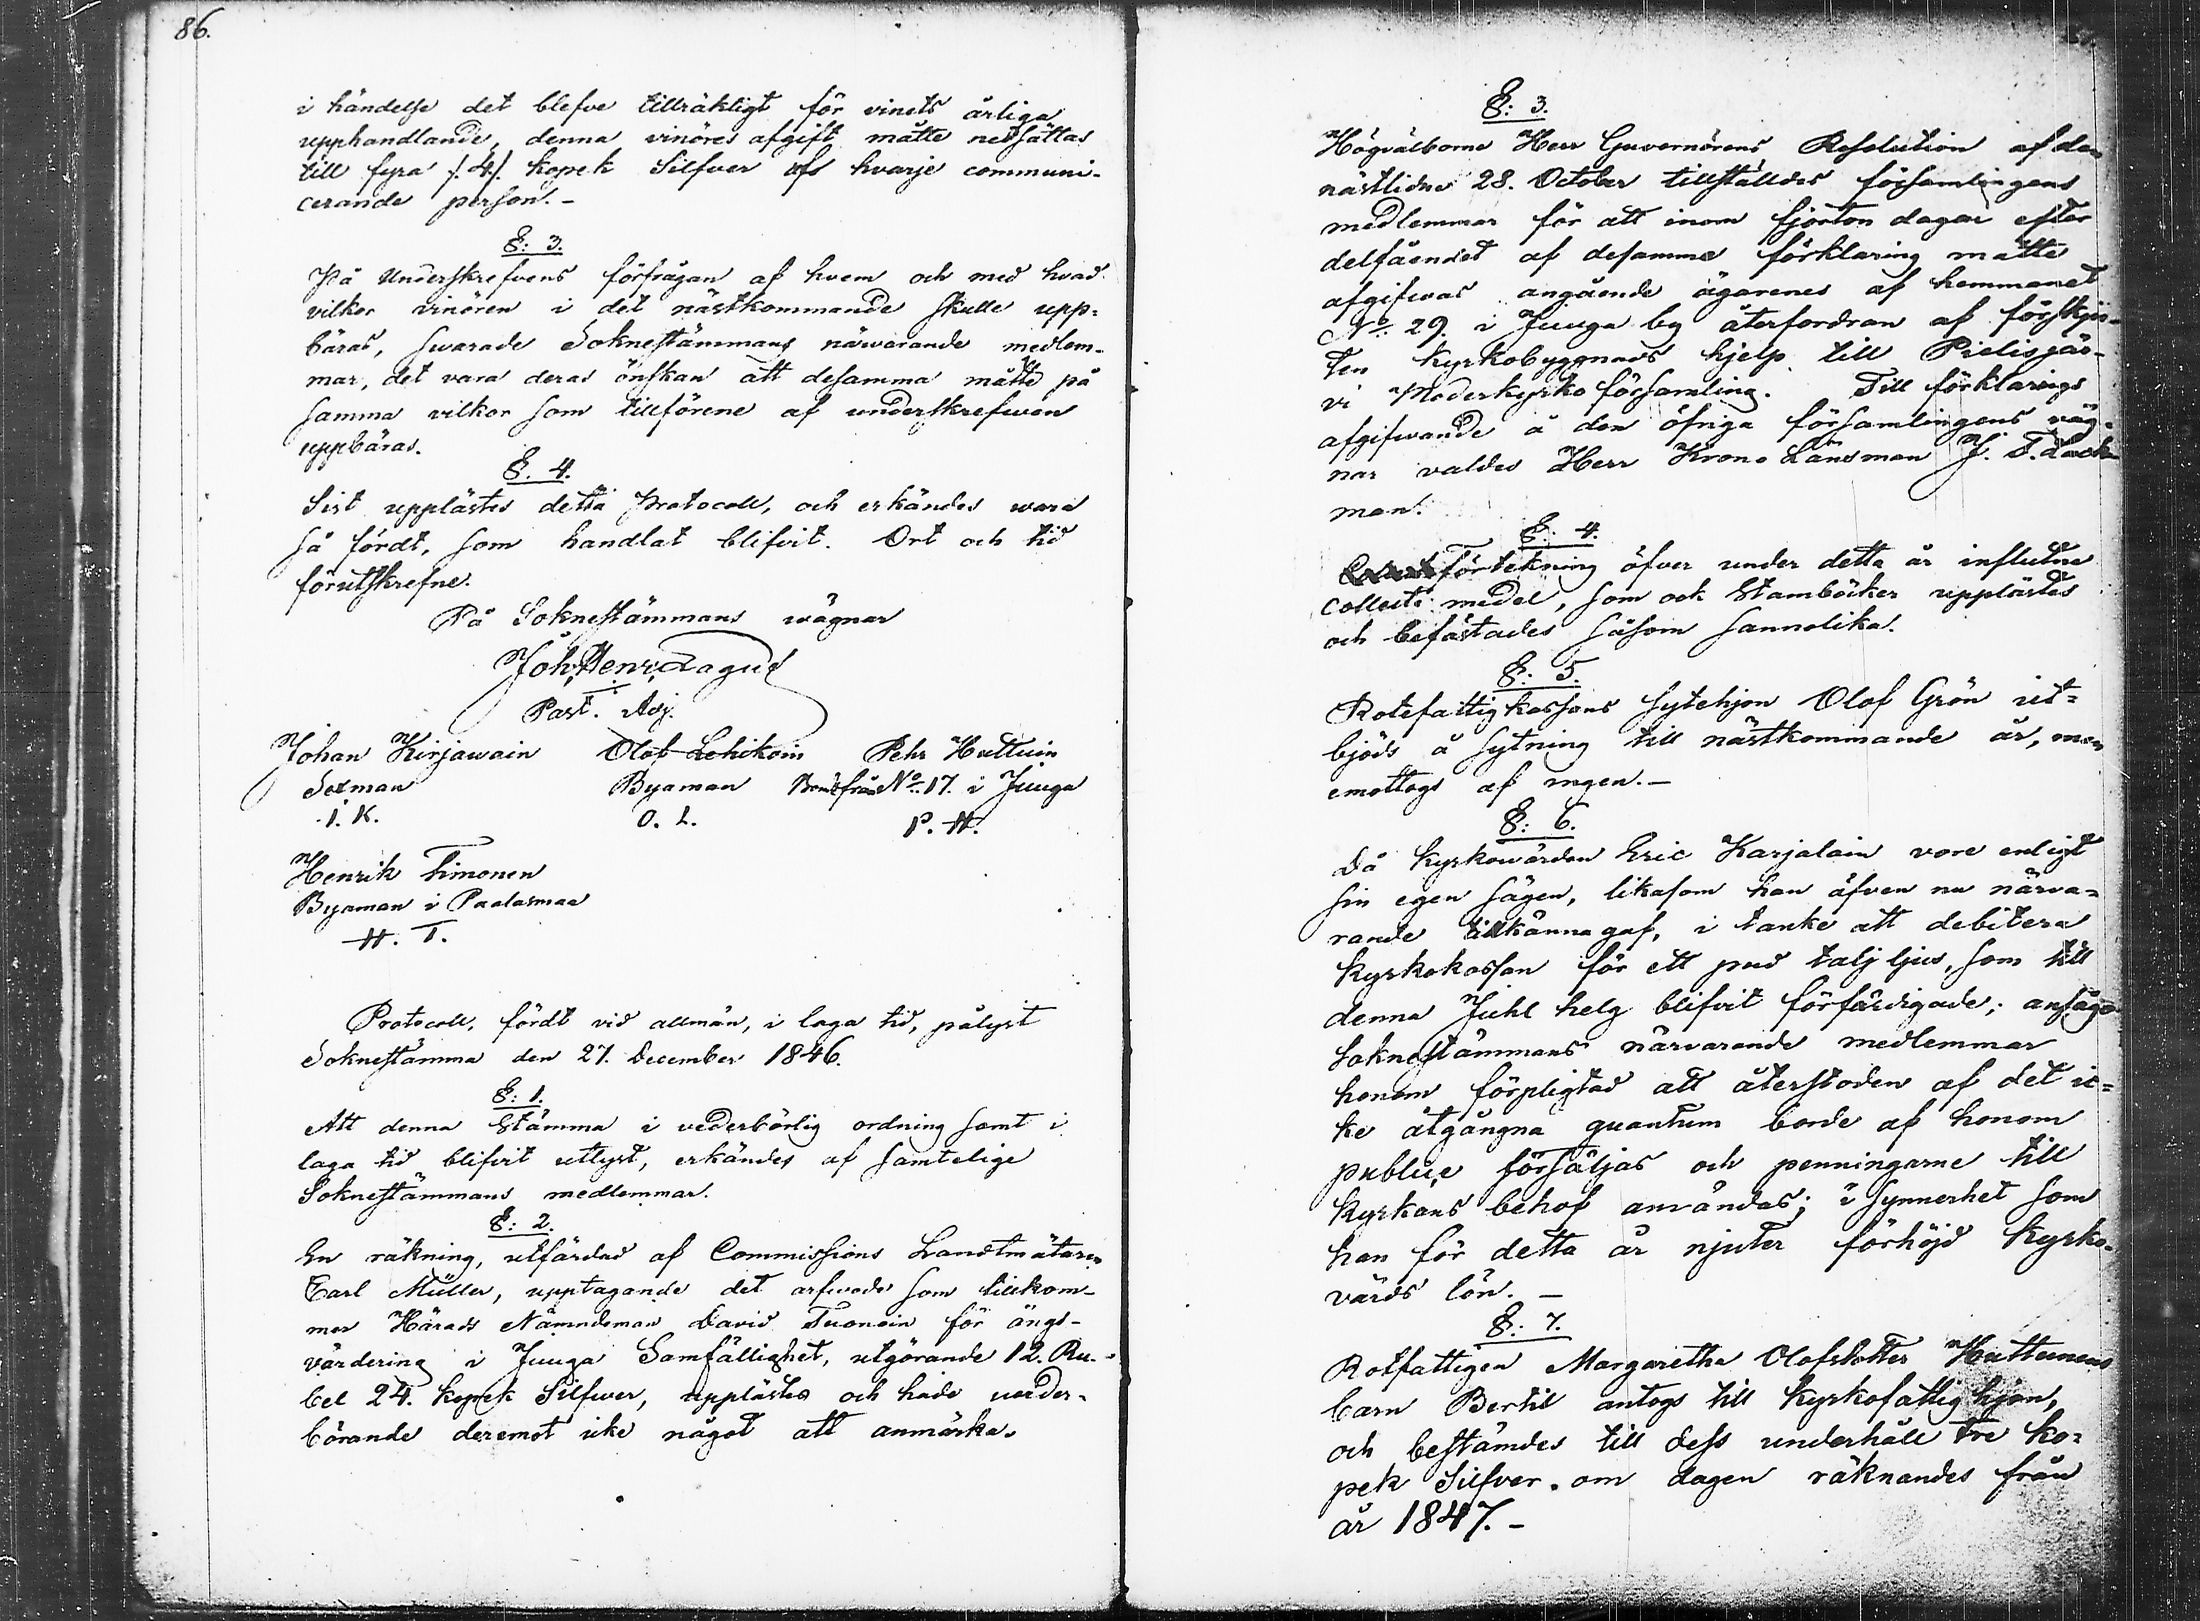 86.
i händelse det blefve tillräktigt för vinets årliga
upphandlande, denna vinöres afgift måtte nedsättas
till fyra /. 4 /. kopek Silfver af hvarje communi-
cerande person. -
§: 3.
På Underskrefvens förfrågan af hvem och med hvad
vilkor vinören i det nästkommande skulle upp-
bäras, swarade Soknestämmans närvarande medlem-
mar, det vara deras önskan att desamma måtte på
samma vilkor som tillförene af underskrefwen
uppbäras.
§. 4.
Sist upplästes detta Protocoll, och erkändes wara
så fördt, som handlat blifvit. Ort och tid
förutskrefne.
På Soknestämmans wägnar
Joh. Henr. Lagus
Past. Adj.
Johan Kirjawain Olof Lehikoin Pehr Huttuin
Sexman Byaman Bonde från No. 17. i Juuga
I. K. O. L. P. H.
Henrik Timonen
Byaman i Paalasmaa
H. T.
Protocoll, fördt vid allmän, i laga tid, pålyst
Soknestämma den 27. December 1846.
§: 1.
Att denna Stämma i vederbörlig ordning samt i
laga tid blifvit utlyst, erkändes af samtelige
Soknestämmans medlemmar.
§: 2.
En räkning, utfärdad af Commissions Landtmätaren
Carl Müller, upptagande det arfwode som tillkom-
mer Härads Nämndeman David Tuonoin för ängs-
värdering i Juuga Samfällighet, utgörande 12. Ru-
bel 24. kopek Silfwer, upplästes och hade veder-
börande deremot icke något att anmärka.
§: 3.
Högvälborne Herr Guvernörens Resolution af den
nästlidne 28. October tillställdes församlingens
medlemmar för att inom fjorton dagar efter
delfåendet af desamma förklaring måtte
afgifwas angående ägarenes af hemmanet
No. 29. i Juuga by återfordran af förskju-
ten kyrkobyggnads hjelp till Pielisjär-
vi Moderkyrko församling. Till förklarings
afgifwande å den öfriga församlingens väg-
nar valdes Herr Krono Länsman J. F. Lack-
man.
§: 4.
Förtekning öfver under detta år influtne
collecte medel, som ock Stamböcker upplästes
och befästades såsom sannolika.
§: 5.
Rotefattigkassans sytehjon Olof Grön ut-
bjöds å sytning till nästkommande år, men
emottogs af ingen. -
§: 6.
Då kyrkowärden Eric Karjalain vore enligt
sin egen sägen, likasom han äfven nu närva-
rande tillkännagaf, i tanke att debitera
kyrkokassan för ett pud talj ljus, som till
denna Juhl helg blifvit förfärdigade; ansågo
Soknestämmans närvarande medlemmar
honom förpligtad att återstoden af det ic-
ke åtgångna quantum borde af honom
publice försäljas och penningarne till
kyrkans behof användas; i synnerhet som
han för detta år njuter förhöjd kyrko-
värds lön. -
§: 7.
Rotfattigen Margaretha Olofsdotter Huttunens
barn Bertil antogs till kyrkofattighjon,
och bestämdes till dess underhåll tre ko-
pek Silfver om dagen räknandes från
år 1847. -